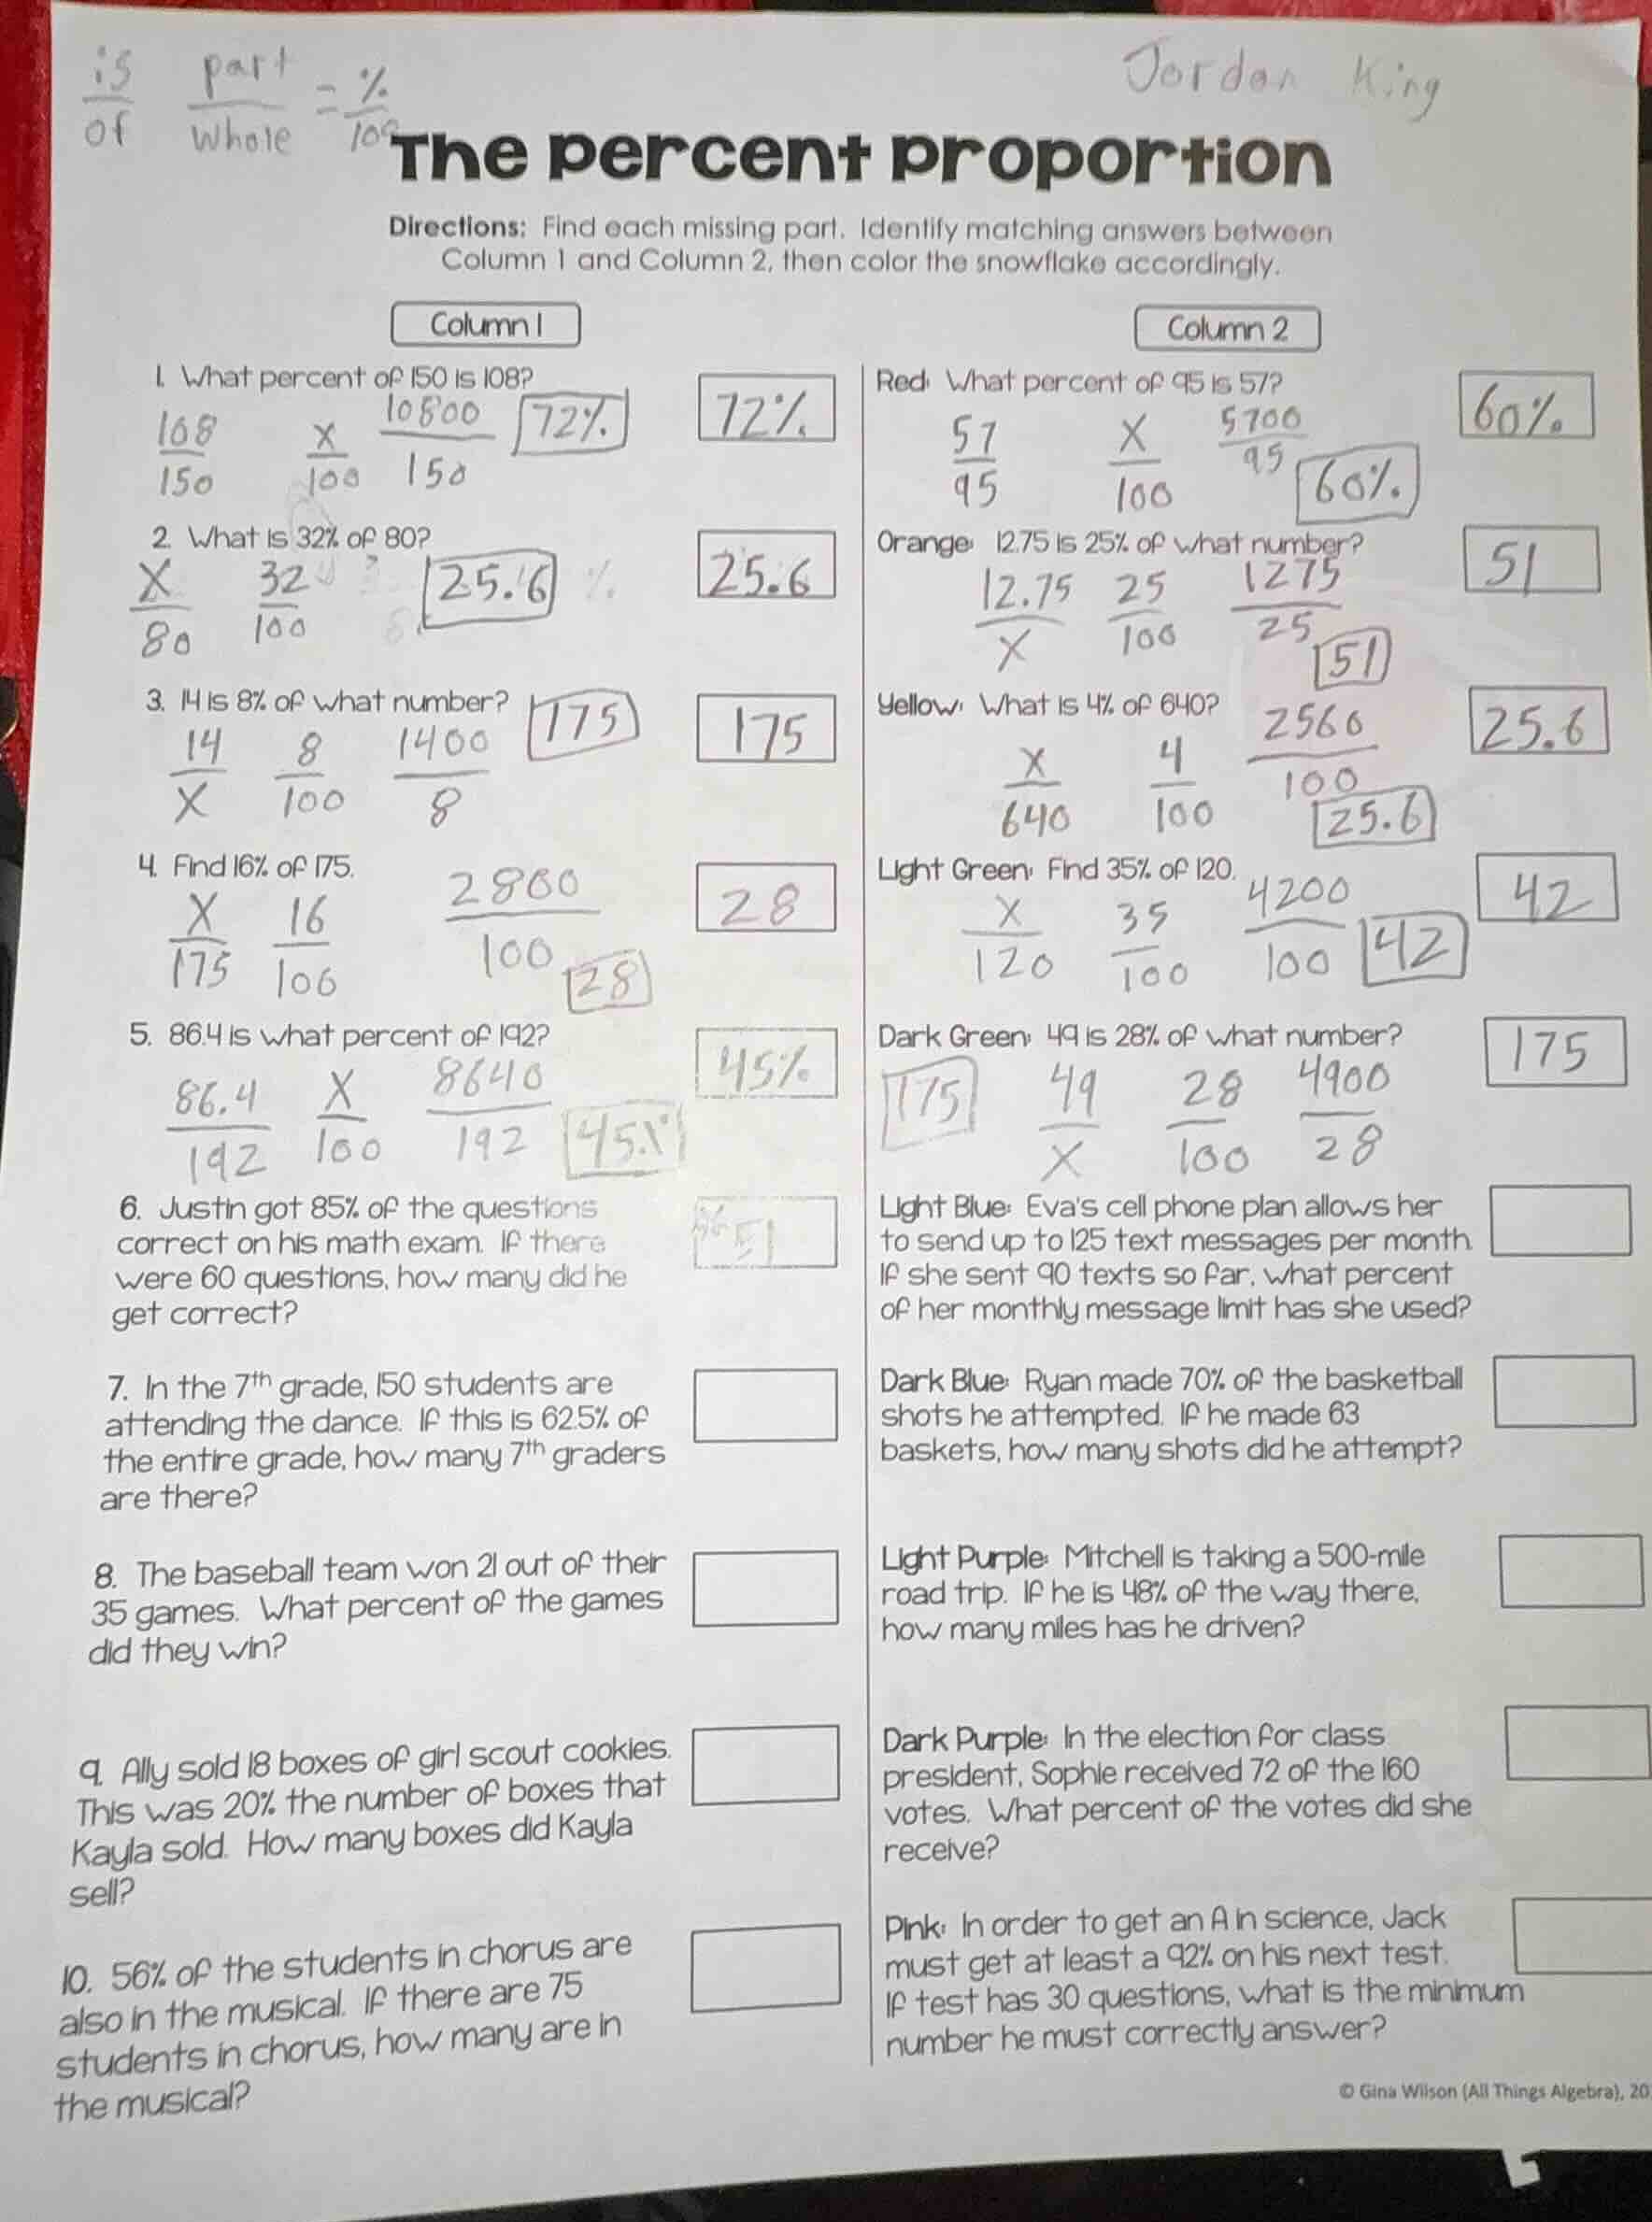 is part = %
of whole 100
Jordan King
The percent proportion
Directions: Find each missing part. Identify matching answers between
Column 1 and Column 2, then color the snowflake accordingly.
Column 1
1. What percent of 150 is 108?
72%
108 x 10800 72%
150 100 150
2. What is 32% of 80?
25.6
X 32 25.6 %
80 100
3. 14 is 8% of what number?
175
175
14 8 1400
X 100 8
4. Find 16% of 175.
28
X 16 2800
175 100 100
28
5. 86.4 is what percent of 192?
45%
86.4 X 8640
192 100 192 45%
6. Justin got 85% of the questions
correct on his math exam. If there
were 60 questions, how many did he
get correct?
51
7. In the 7th grade, 150 students are
attending the dance. If this is 62.5% of
the entire grade, how many 7th graders
are there?
8. The baseball team won 21 out of their
35 games. What percent of the games
did they win?
9. Ally sold 18 boxes of girl scout cookies.
This was 20% the number of boxes that
Kayla sold. How many boxes did Kayla
sell?
10. 56% of the students in chorus are
also in the musical. If there are 75
students in chorus, how many are in
the musical?
Column 2
Red: What percent of 95 is 57?
60%
57 X 5700
95 100 95
60%
Orange: 12.75 is 25% of what number?
51
12.75 25 1275
X 100 25
51
Yellow: What is 4% of 640?
25.6
X 4 2560
640 100 100
25.6
Light Green: Find 35% of 120.
42
X 35 4200
120 100 100 42
Dark Green: 49 is 28% of what number?
175
175 49 28 4900
X 100 28
Light Blue: Eva's cell phone plan allows her
to send up to 125 text messages per month.
If she sent 90 texts so far, what percent
of her monthly message limit has she used?
Dark Blue: Ryan made 70% of the basketball
shots he attempted. If he made 63
baskets, how many shots did he attempt?
Light Purple: Mitchell is taking a 500-mile
road trip. If he is 48% of the way there,
how many miles has he driven?
Dark Purple: In the election for class
president, Sophie received 72 of the 160
votes. What percent of the votes did she
receive?
Pink: In order to get an A in science, Jack
must get at least a 92% on his next test.
If test has 30 questions, what is the minimum
number he must correctly answer?
© Gina Wilson (All Things Algebra), 20